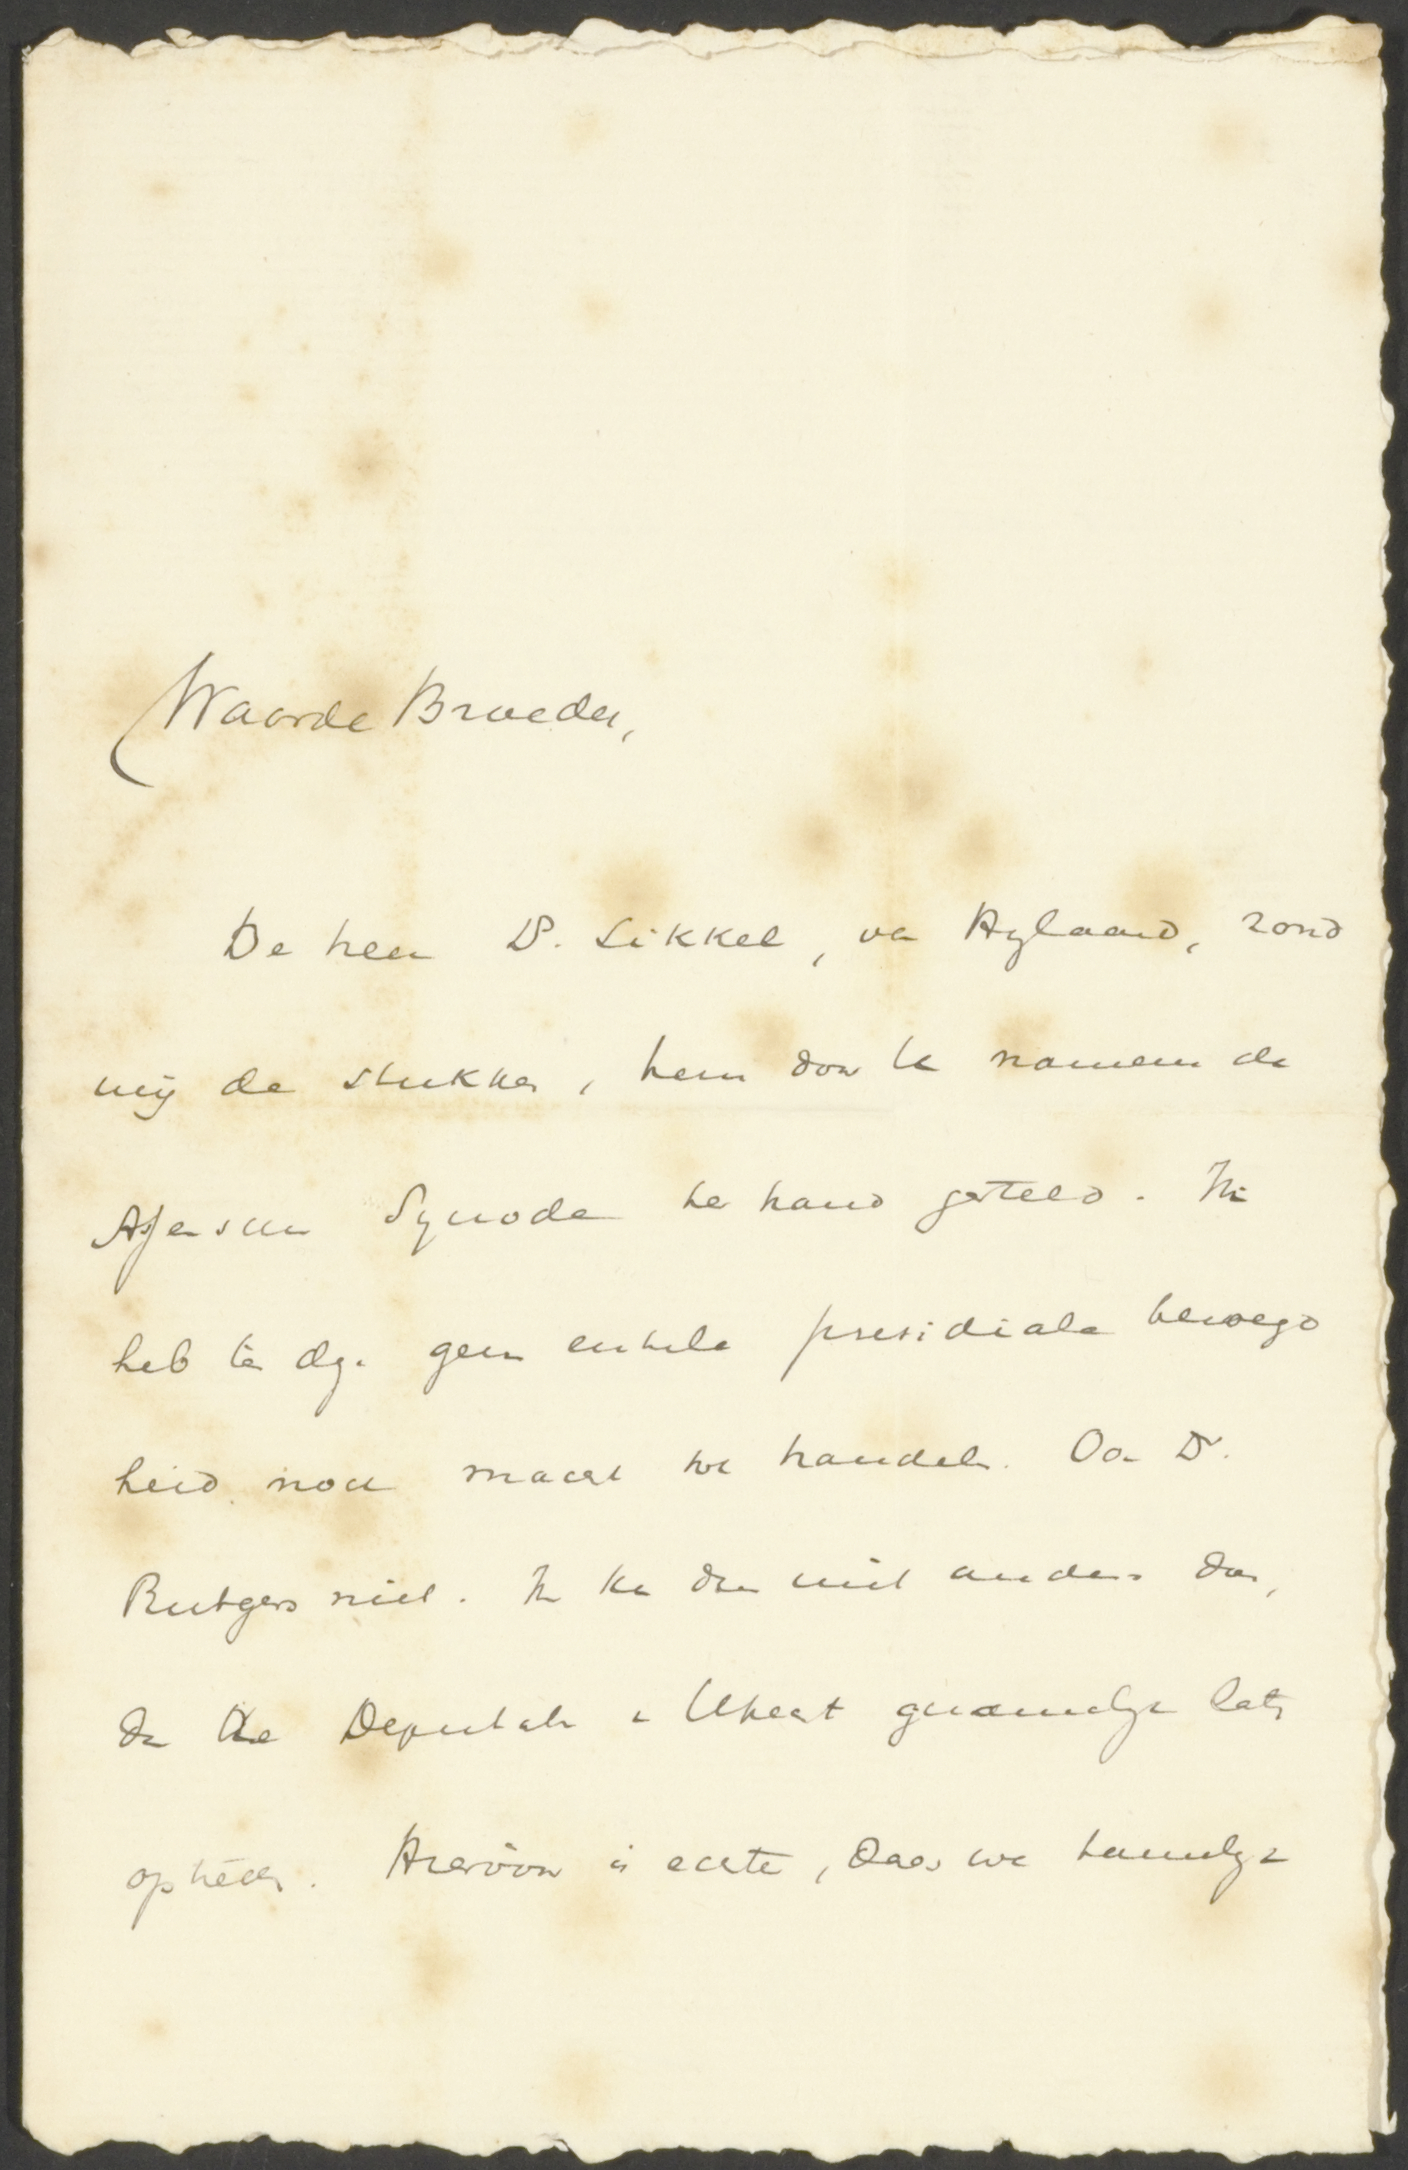 Waarde Broeder,
De heer Ds. Sikkel, van Hylaard, zond
mij de stukken, hem door te namens de
Assensche Synode ter hand gesteld. Ik
heb te dezen geen enkele presidiale bevoegd
heid noch macht tot handelen. Ook Dr.
Rutgers niet. Ik kan dus niet anders dan,
de Deputaten Utrecht
. Hiervoor is echter, we